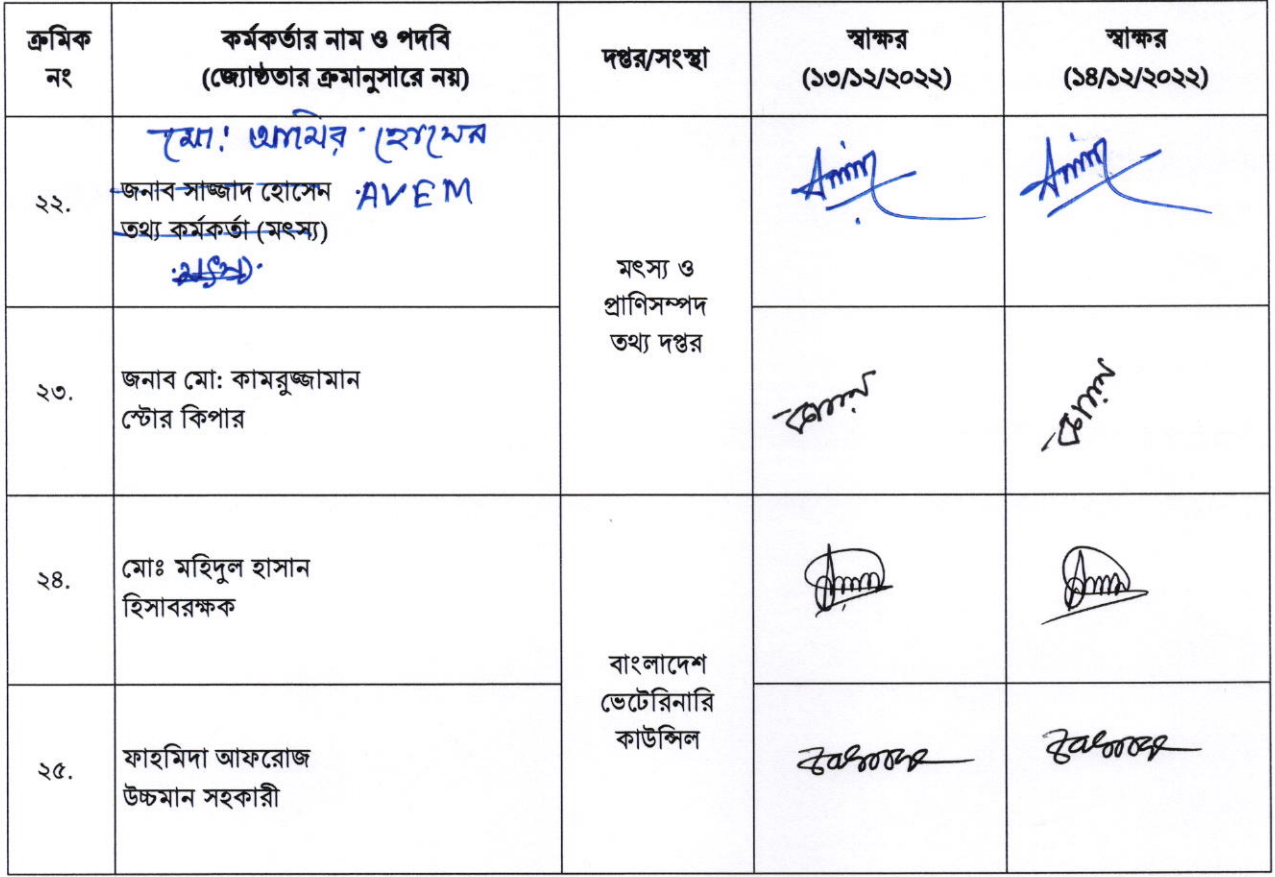 ক্রমিক নং
কর্মকর্তার নাম ও পদবি
(জ্যেষ্ঠতার ক্রমানুসারে নয়)
দপ্তর/সংস্থা
স্বাক্ষর
(১৩/১২/২০২২)
স্বাক্ষর
(১৪/১২/২০২২)
২২.
মো: আমির হোসেন
জনাব সাজ্জাদ হোসেন AVEM
তথ্য কর্মকর্তা (মৎস্য)
মৎস্য ও
প্রাণিসম্পদ
তথ্য দপ্তর
২৩.
জনাব মো: কামরুজ্জামান
স্টোর কিপার
২৪.
মোঃ মহিদুল হাসান
হিসাবরক্ষক
বাংলাদেশ
ভেটেরিনারি
কাউন্সিল
২৫.
ফাহমিদা আফরোজ
উচ্চমান সহকারী